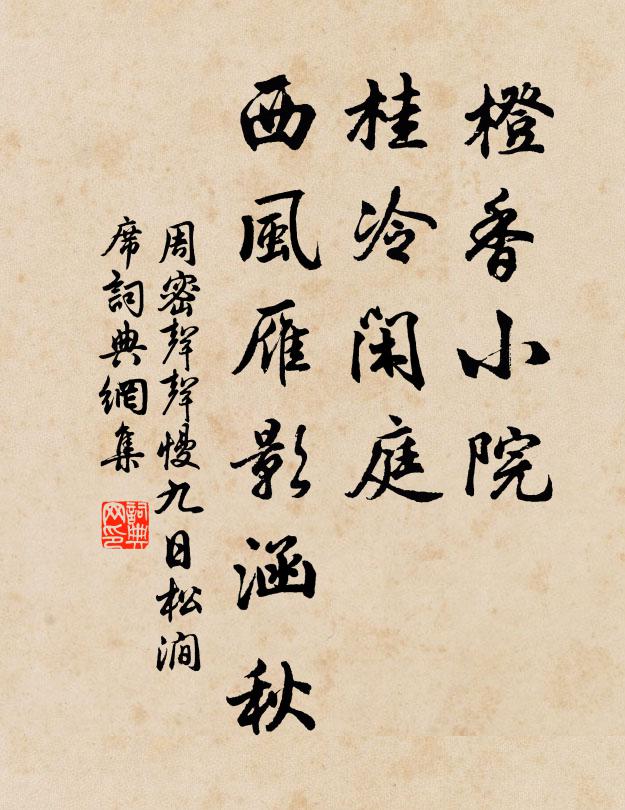 橙香小院
桂冷閑庭
西風雁影涵秋
周密聲聲慢九日松澗
席詞典網集
詞典網印